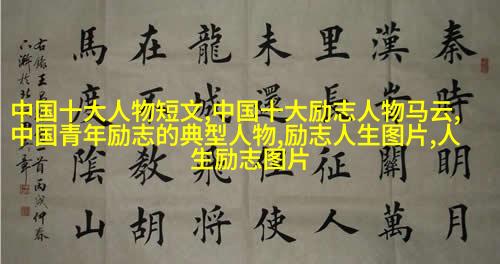 中国十大人物短文,中国十大励志人物马云,
中国青年励志的典型人物,励志人生图片,人
生励志图片
秦時明月
漢關萬
里長征人
未還但使
龍城飛將
在不教胡
馬度陰山